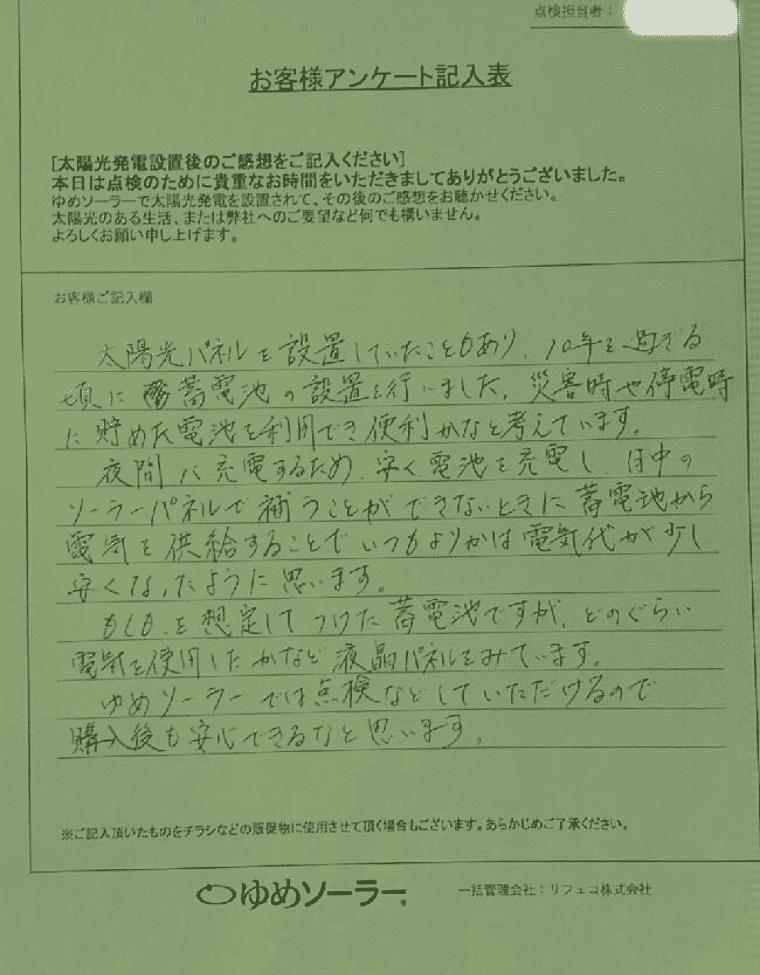 点検担当者：
お客様アンケート記入表
[太陽光発電設置後のご感想をご記入ください]
本日は点検のために貴重なお時間をいただきましてありがとうございました。
ゆめソーラーで太陽光発電を設置されて、その後のご感想をお聴かせください。
太陽光のある生活、または弊社へのご要望など何でも構いません。
よろしくお願い申し上げます。
お客様ご記入欄
太陽光パネルを設置していたこともあり、10年を過ぎる
頃に蓄電池の設置を行いました。災害時や停電時
に貯めた電池を利用でき便利かなと考えています。
夜間に充電するため、安く電池を充電し、日中の
ソーラーパネルで補うことができないときに蓄電池から
電気を供給することでいつもよりかは電気代が少し
安くなったように思います。
もしも、を想定してつけた蓄電池ですが、どのぐらい
電気を使用したかなど液晶パネルをみています。
ゆめソーラーでは点検などしていただけるので
購入後も安心できるなと思います。
※ご記入頂いたものをチラシなどの販促物に使用させて頂く場合もございます。あらかじめご了承ください。
ゆめソーラー
一括管理会社：リフェコ株式会社